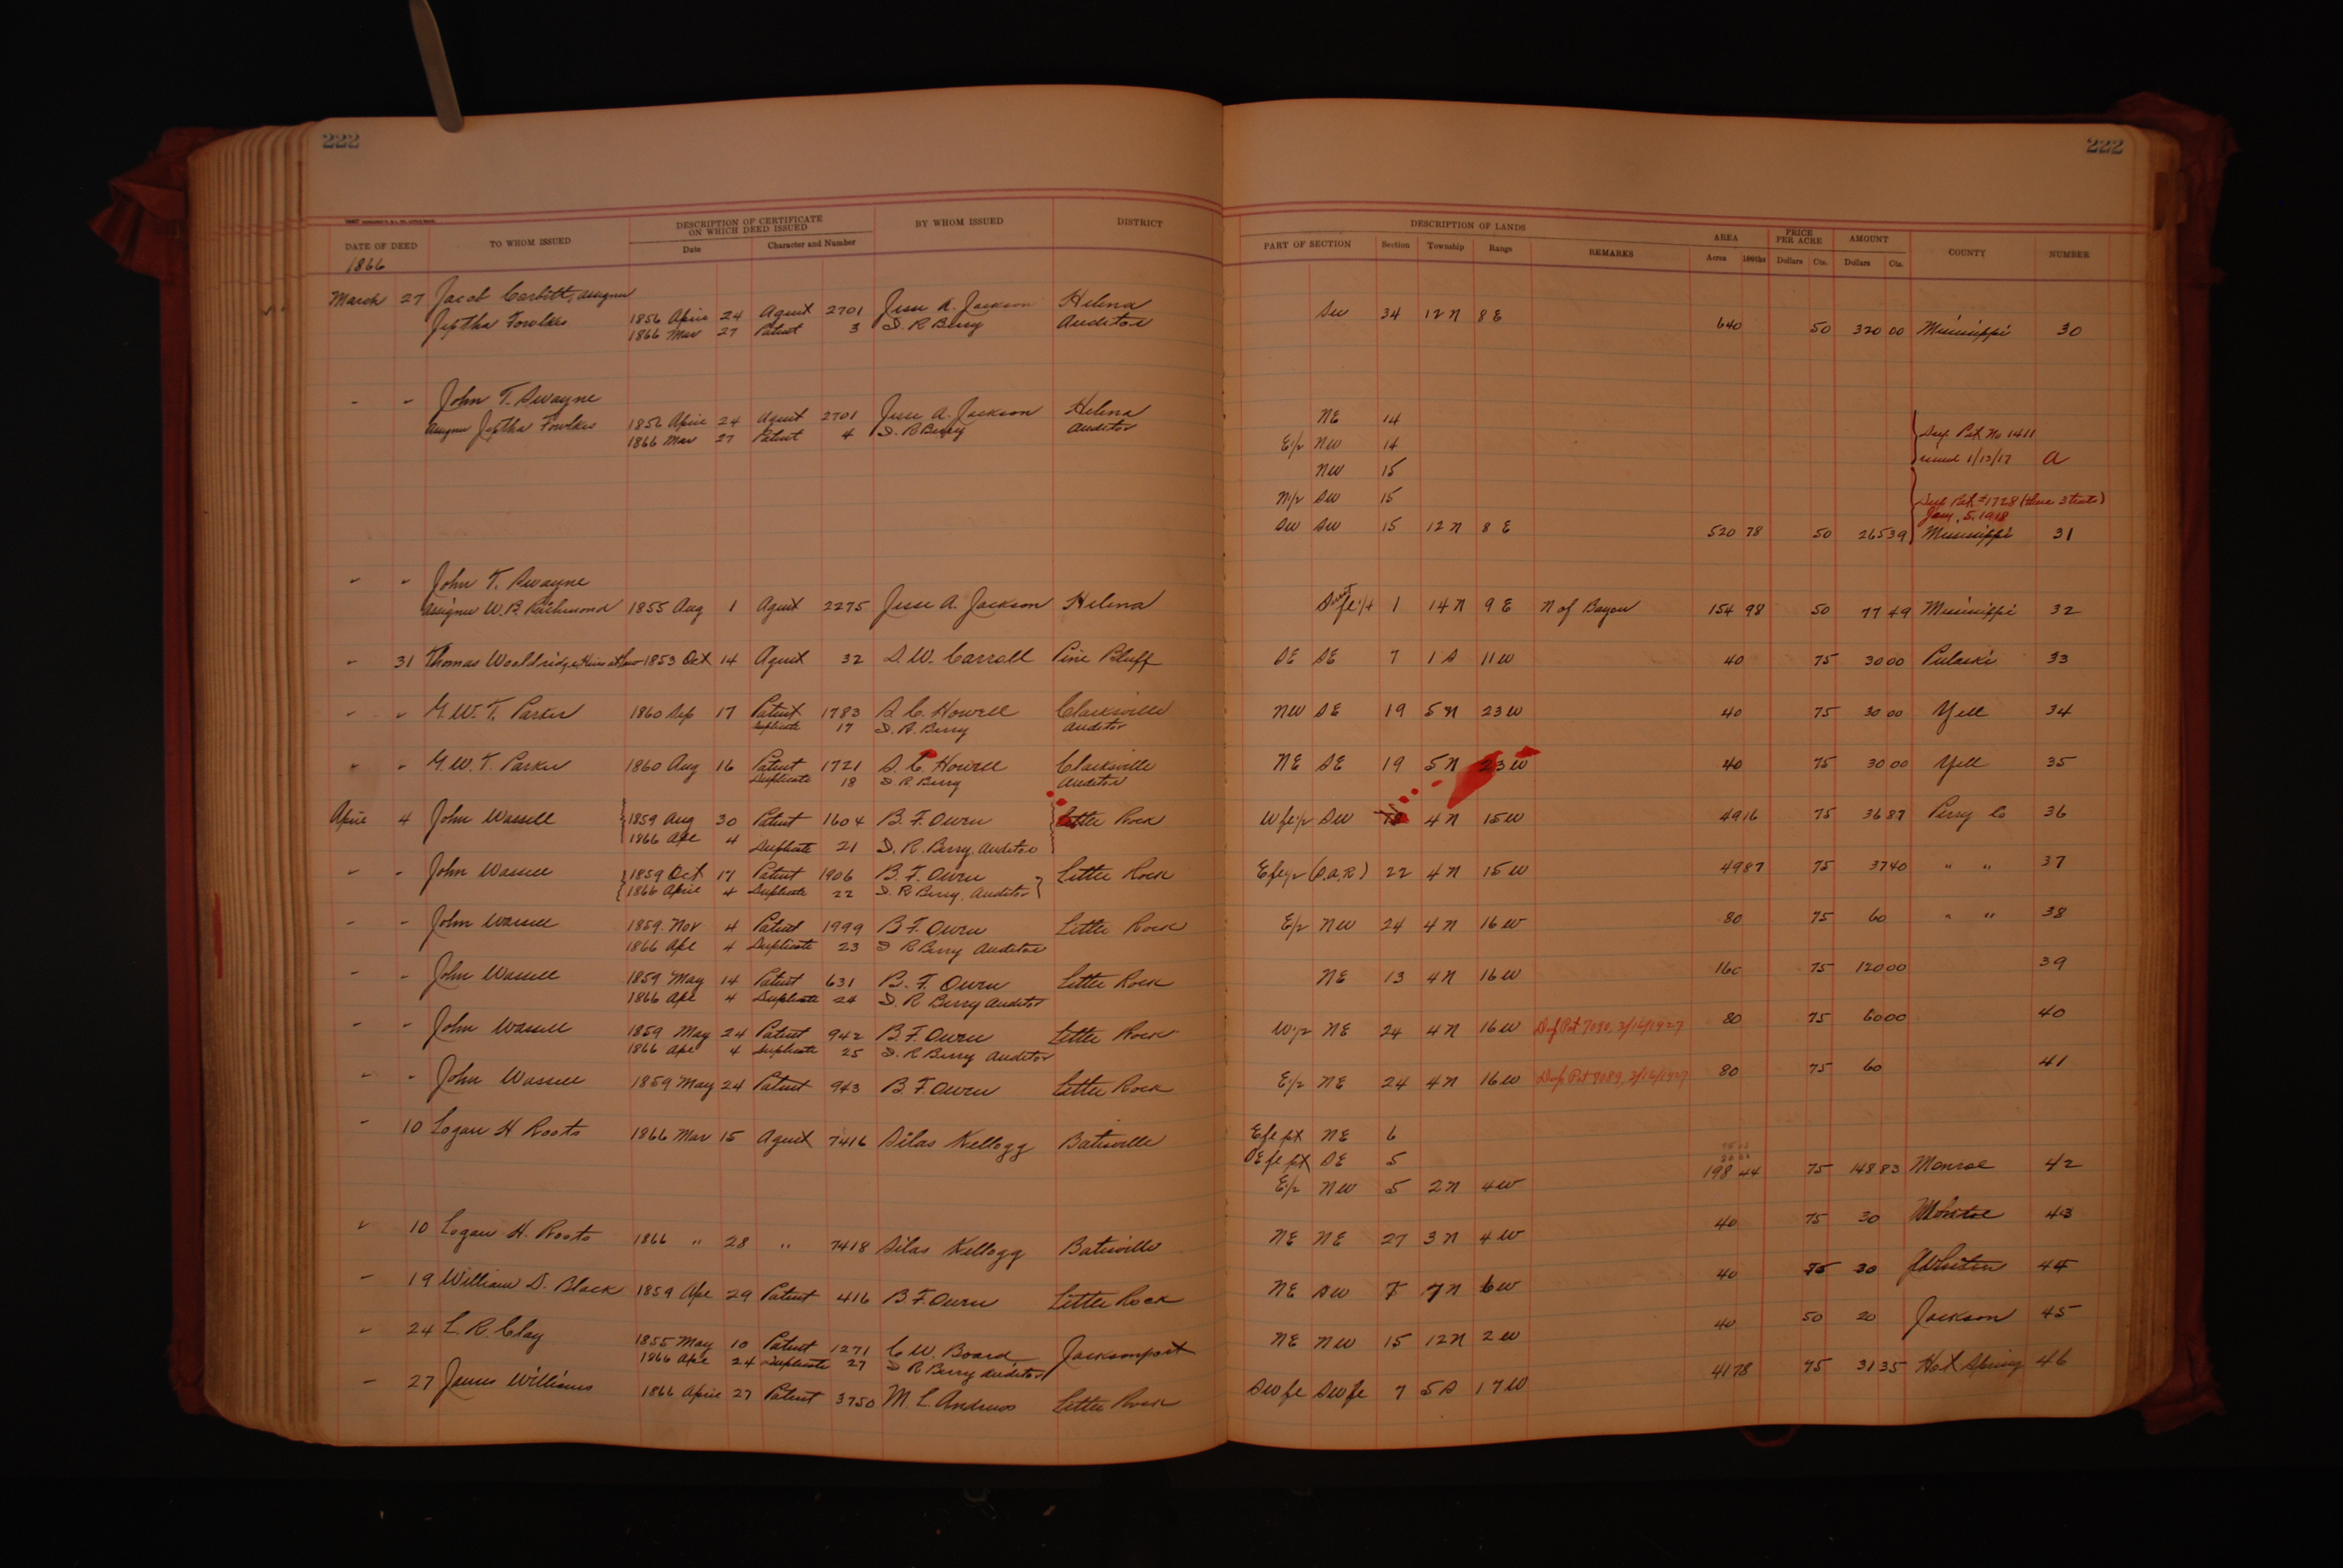 222 222
DATE OF DEED TO WHOM ISSUED DESCRIPTION OF CERTIFICATE ON WHICH DEED ISSUED Date Character and Number BY WHOM ISSUED DISTRICT PART OF SECTION DESCRIPTION OF LANDS Section Township Range REMARKS AREA Acres 100ths PRICE PER ACRE Dollars Cts. AMOUNT Dollars Cts. COUNTY NUMBER
1866
March 27 Jacob Corbitt, assignee
Jeptha Fowlkes 1856 April 24 Agent 2701 Jesse A. Jackson Helena SW 34 12 N 8 E
1866 Mar 27 Patent 3 I. R Berry Auditor 640 50 320 00 Mississippi 30
" " John T. Swayne
assignee Jeptha Fowlkes 1856 April 24 Agent 2701 Jesse A. Jackson Helena NE 14
1866 Mar 27 Patent 4 I. R Berry Auditor E½ NW 14 Dup. Pat No 1411
NW 15 issued 1/13/17 a
N½ SW 15 Dup Pat #1728 (these 3 tracts)
Jany. 5, 1918
SW SW 15 12 N 8 E 520 78 50 265 39 Mississippi 31
" " John T. Swayne
assignee W. B. Richmond 1855 Aug 1 Agent 2275 Jesse A. Jackson Helena 1 14 N 9 E N of Bayou 154 98 50 77 49 Mississippi 32
" 31 Thomas Wooldridge, Heirs at law 1853 Oct 14 Agent 32 S. W. Carroll Pine Bluff SE SE 7 1 S 11 W 40 75 30 00 Pulaski 33
" " G. W. T. Parker 1860 Sep 17 Patent 1783 S C. Howell Clarksville NW SE 19 5 N 23 W 40 75 30 00 Yell 34
Duplicate 17 I. R. Berry Auditor
" " G. W. T. Parker 1860 Aug 16 Patent 1721 S. C. Howell Clarksville NE SE 19 5 N 23 W 40 75 30 00 Yell 35
Duplicate 18 I R. Berry Auditor
April 4 John Wassell 1859 Aug 30 Patent 1604 B. F. Owen Little Rock W fr ½ SW 4 N 15 W 49 16 75 36 87 Perry Co 36
1866 Apl 4 Duplicate 21 I. R. Berry, Auditor
" " John Wassell 1859 Oct 17 Patent 1906 B. F. Owen Little Rock E fr ½ 22 4 N 15 W 49 87 75 37 40 " " 37
1866 April 4 Duplicate 22 I. R Berry, Auditor
" " John Wassell 1859 Nov 4 Patent 1999 B F. Owen Little Rock E½ NW 24 4 N 16 W 80 75 60 " " 38
1866 Apl 4 Duplicate 23 I R Berry Auditor
" " John Wassell 1859 May 14 Patent 631 B. F. Owen Little Rock NE 13 4 N 16 W 160 75 120 00 39
1866 Apl 4 Duplicate 24 I. R Berry Auditor
" " John Wassell 1859 May 24 Patent 942 B. F. Owen Little Rock W½ NE 24 4 N 16 W Dup Pat 80 75 60 00 40
1866 Apl 4 Duplicate 25 I. R Berry Auditor
" " John Wassell 1859 May 24 Patent 943 B. F. Owen Little Rock E½ NE 24 4 N 16 W Dup Pat 80 75 60 41
" 10 Logan H Roots 1866 Mar 15 Agent 7416 Silas Kellogg Batesville E fr pt NE 6
SE fr pt SE 5
E½ NW 5 2 N 4 W 198 44 75 148 83 Monroe 42
" 10 Logan H. Roots 1866 " 28 " 7418 Silas Kellogg Batesville NE NE 27 3 N 4 W 40 75 30 Monroe 43
" 19 William D. Black 1859 Apl 29 Patent 416 B. F. Owen Little Rock NE SW 7 7 N 6 W 40 75 30 White 44
" 24 L. R. Clay 1855 May 10 Patent 1271 C W. Board Jacksonport NE NW 15 12 N 2 W 40 50 20 Jackson 45
1866 Apl 24 Duplicate 27 I R Berry Auditor
" 27 James Williams 1866 April 27 Patent 3750 M. L. Andrews Little Rock SW fr SW fr 7 5 S 17 W 41 78 75 31 35 Hot Spring 46